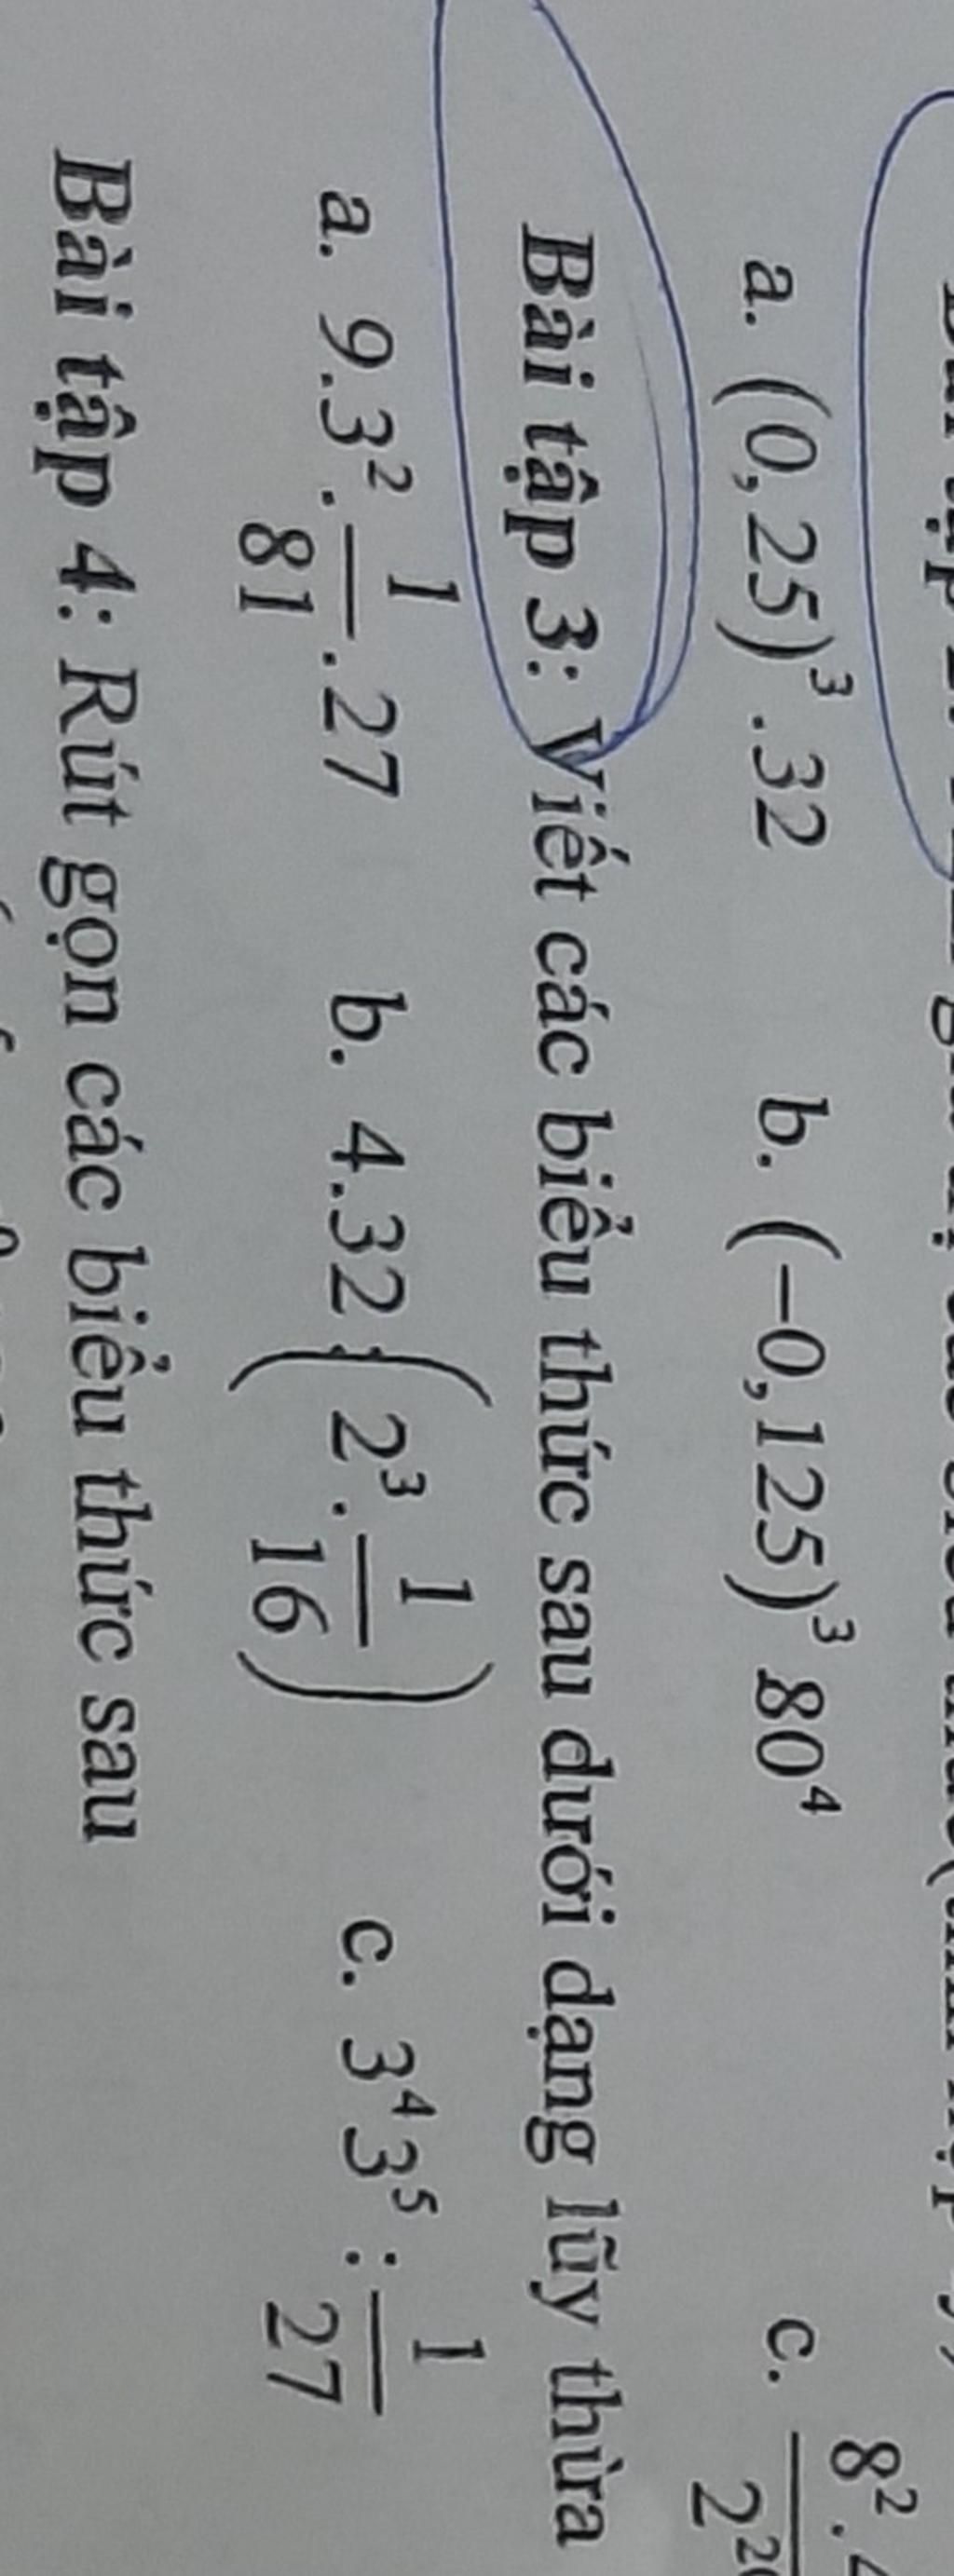 a. (0,25)³.32 b. (−0,125)³ 80⁴ c. 8².
Bài tập 3: Viết các biểu thức sau dưới dạng lũy thừa
a. 9.3².1/81.27 b. 4.32:(2³.1/16) c. 3⁴3⁵:1/27
Bài tập 4: Rút gọn các biểu thức sau